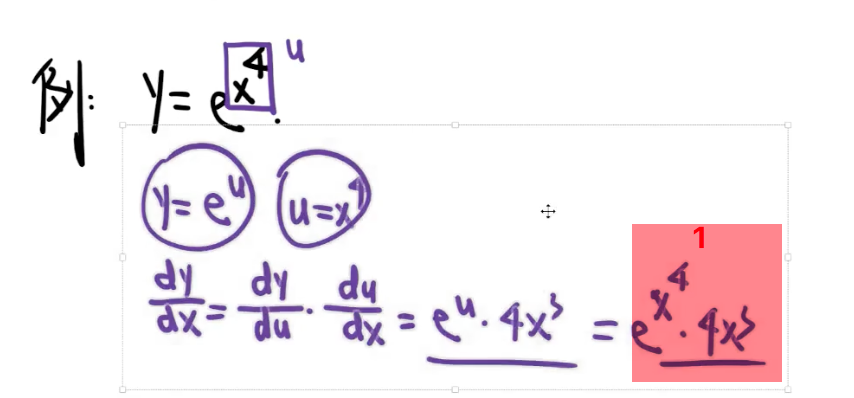 例: y = e^{x^4} u
y = e^u u = x^4
1
dy/dx = dy/du · du/dx = e^u · 4x^3 = e^{x^4} · 4x^3